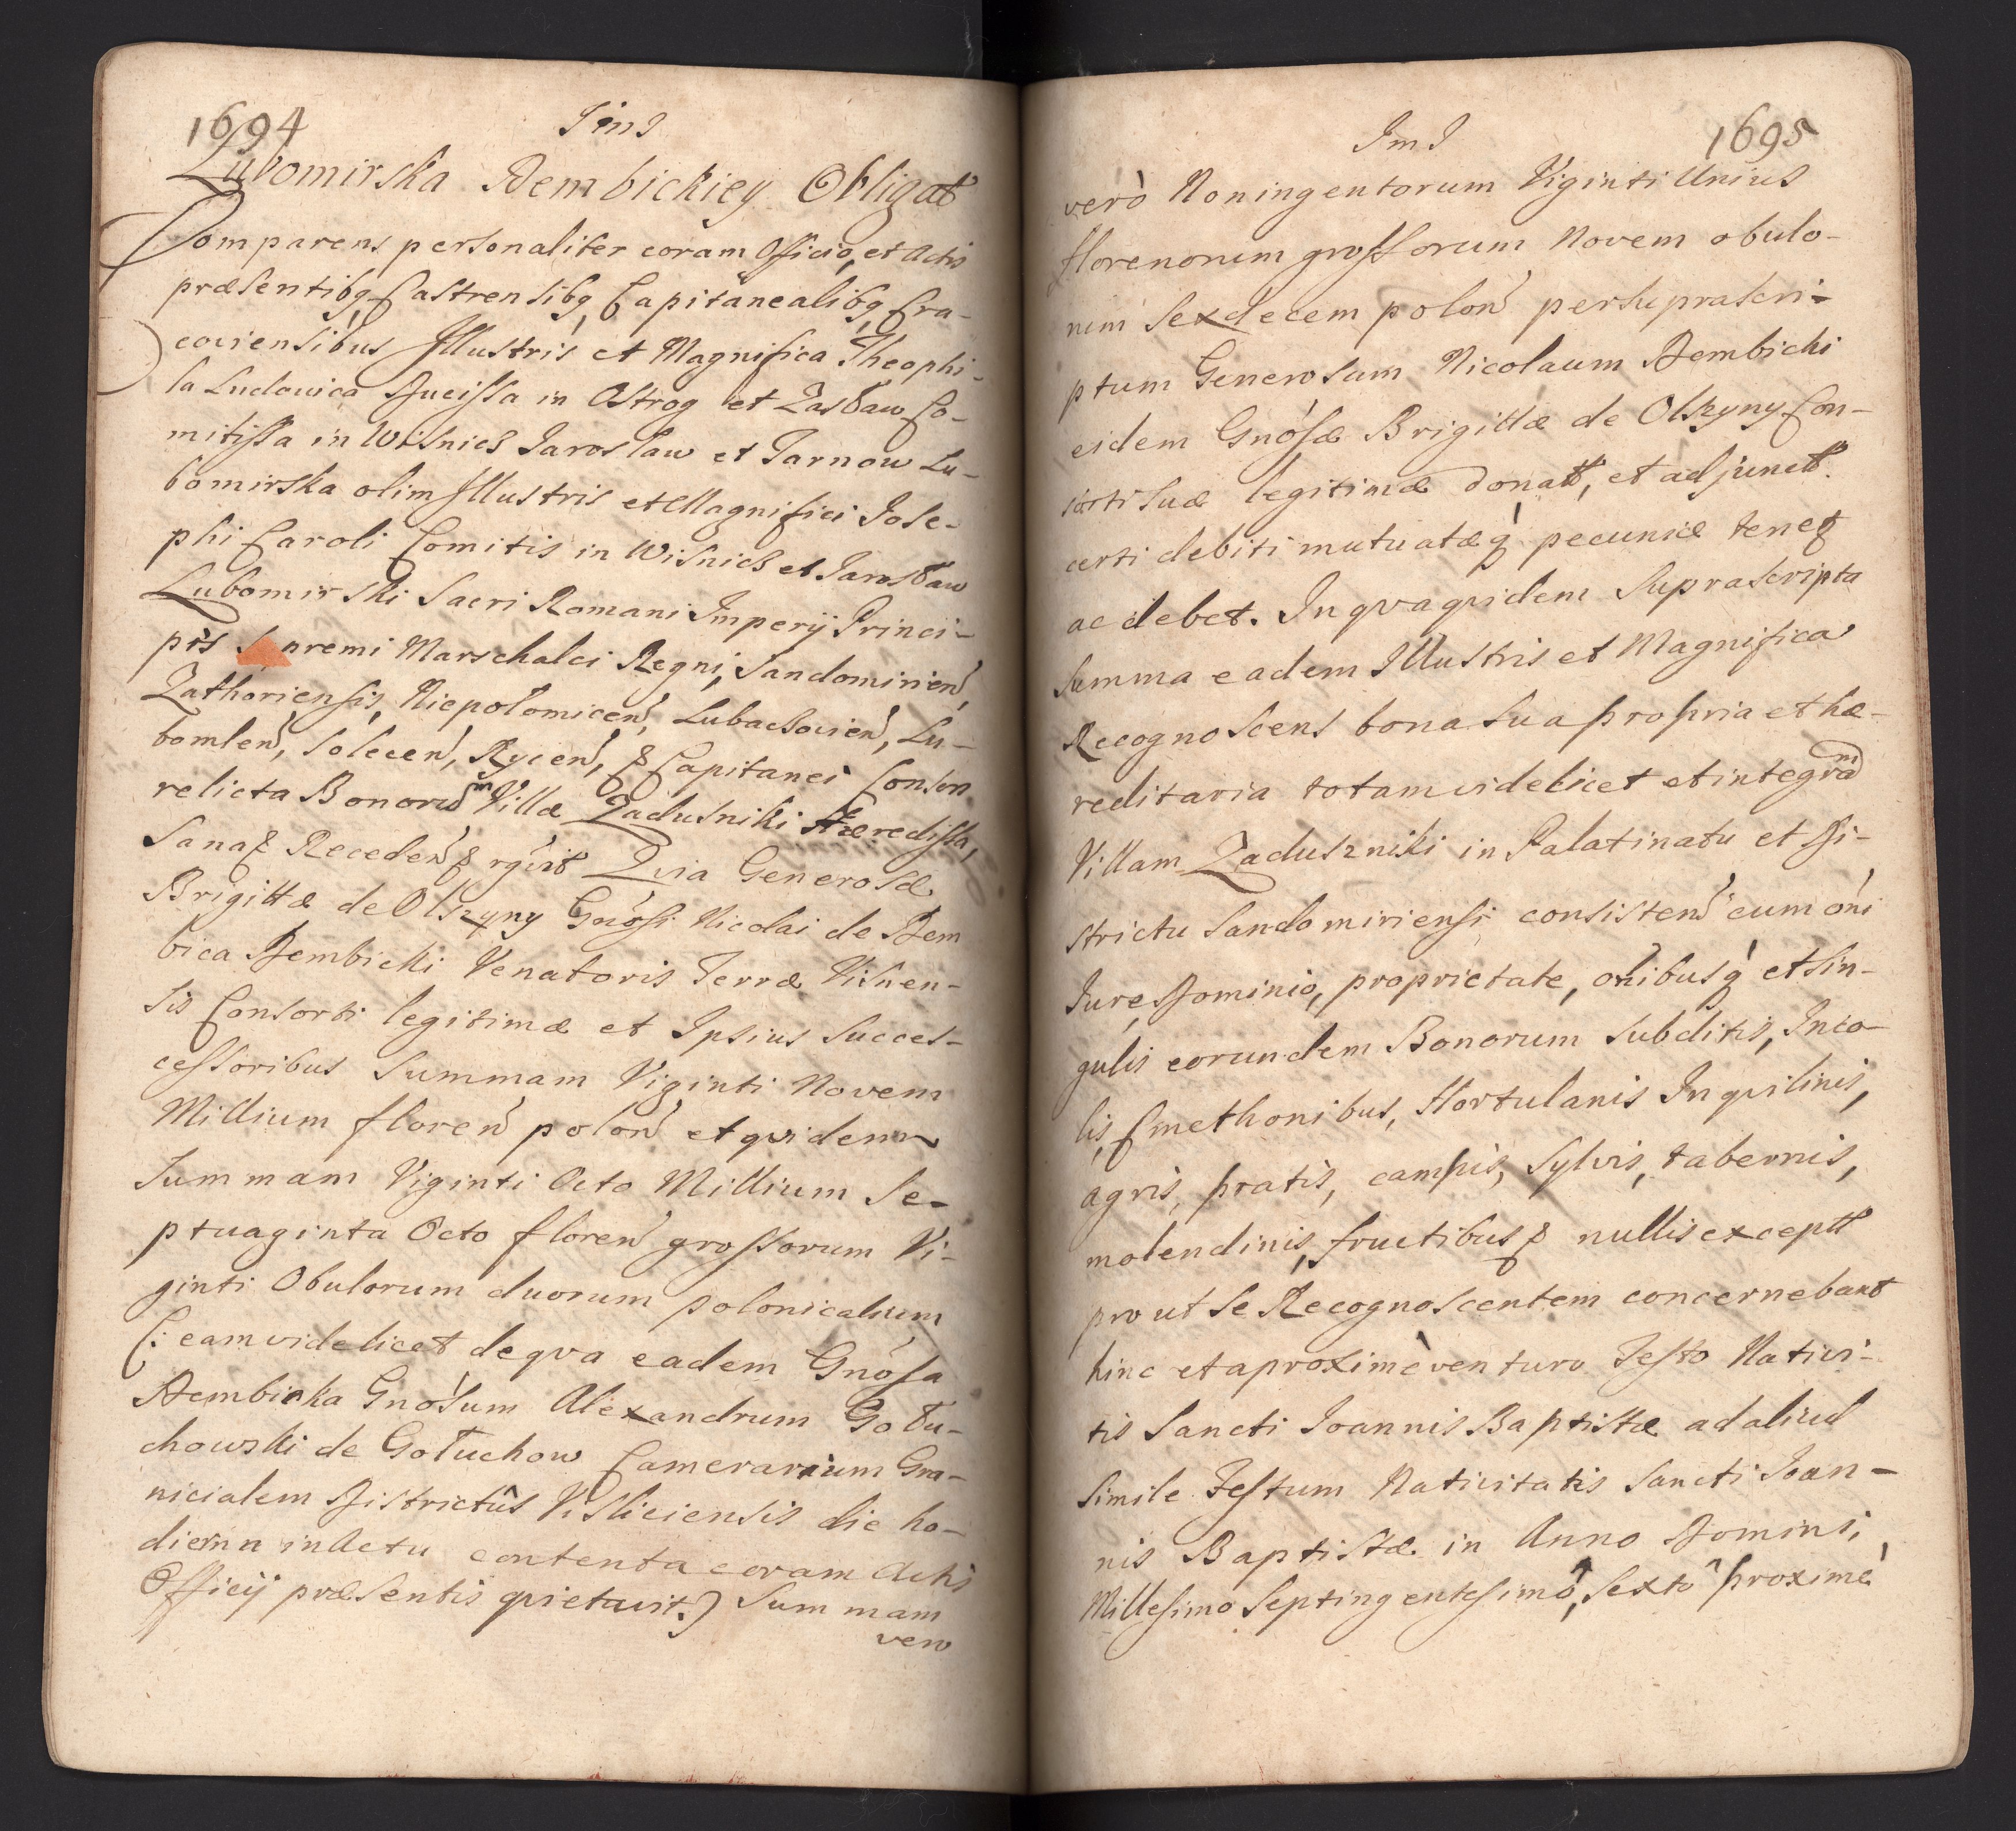 1694
Lubomirska Dembickiey Obligat
Comparens personaliter coram Officio, et Actis
præsentibq, Castrensibq, Capitanealibq, Cra-
coviensibus Illustris et Magnifica Theophi-
la Ludovica Ducissa in Ostrog et Zasław Co-
mitissa in Wisnicz Jarosław et Tarnow Lu-
bomirska olim Illustris et Magnifici Jose-
phi Caroli Comitis in Wisnicz et Jarosław
Lubomirski Sacri Romani Imperij Princi-
pis premi Marschalci Regni, Sandomirien,
Zathoriensis, Niepołomicen, Lubaczovien, Lu-
bomlen, Solecen, Rycen, & Capitanei Conson
relicta Bonorum Villæ Zaduśniki Hæredissa,
Sana & Receden & rgvit Qvia Generosæ
Brigittæ de Olszyny Gnosi Nicolai de Dem
bica Dembicki Venatoris Terræ Visnen-
sis Consorti legitimæ et Ipsius Succes-
cessoribus Summam Viginti Novem
Millium floren polon et qvidem
Summam Viginti Octo Millium Se-
ptuaginta Octo floren grossorum Vi-
ginti Obulorum duorum polonicalium
(: eam videlicet de qva eadem Gnosa
Dembicka Gnosum Alexandrum Gołu-
chowski de Gołuchow Camerarium Gra-
nicialem Districtûs Visliciensis die ho-
dierna in Actu contenta coram Actis
Officij præsentis qvietavit:) Summam
vero
1695
verò Noningentorum Viginti Unius
florenorum grossorum Novem obulo-
rum Sexdecem polon per suprascri-
ptum Generosum Nicolaum Dembicki
eidem Gnosæ Brigittæ de Olszyny Con-
sorti suæ legitimæ donatt, et adjunctt
certi debiti mutuatæq pecuniæ tenet
ac debet. In qva qvidem Suprascripta
Summa eadem Illustris et Magnifica
Recognoscens bona sua propria et hæ-
reditaria totam videlicet et integram
Villam Zaduszniki in Palatinatu et Di-
strictu Sandomiriensi consisten cum oni
Jure, Dominio, proprietate, onibusq et Sin-
gulis eorundem Bonorum Subditis, Inco-
lis, Cmethonibus, Hortulanis Inqvilinis,
agris, pratis, campis, Sylvis, tabernis,
molendinis, fructibus & nullis exceptt
prout se Recognoscentem concernebant
hinc et a proximè venturo Festo Nativi-
tis Sancti Joannis Baptistæ ad aliud
Simile Festum Nativitatis Sancti Joan-
nis Baptistæ in Anno Domini,
Millesimo Septingentesimô, Sextô proximè